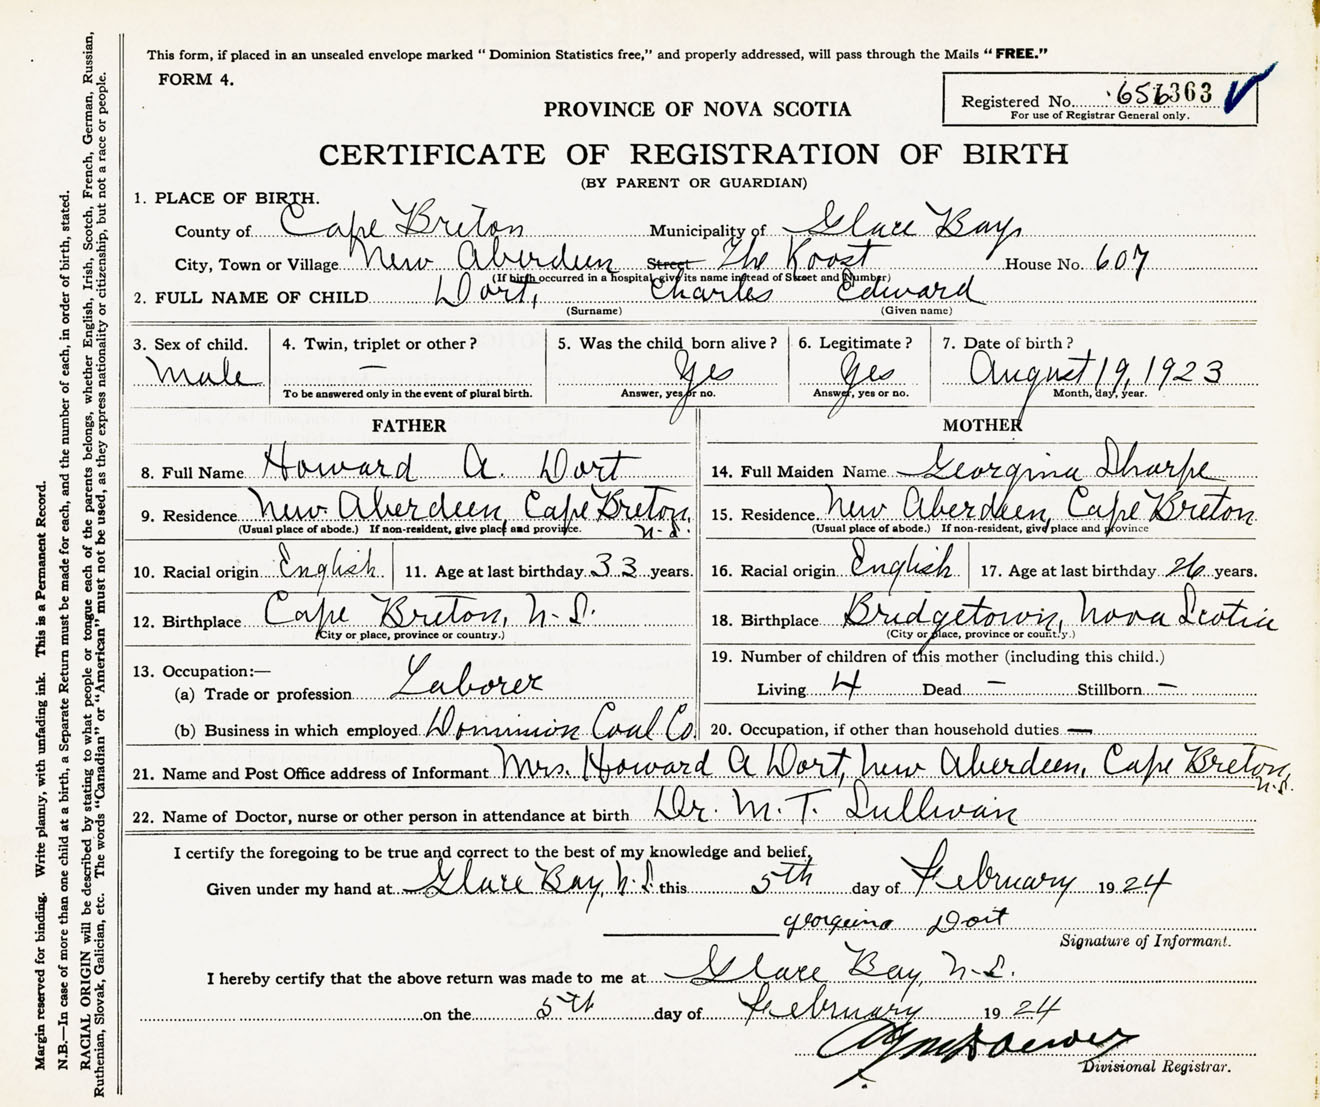 This form, if placed in an unsealed envelope marked "Dominion Statistics free," and properly addressed, will pass through the Mails "FREE."
FORM 4.
Registered No. 656363
For use of Registrar General only.
PROVINCE OF NOVA SCOTIA
CERTIFICATE OF REGISTRATION OF BIRTH
(BY PARENT OR GUARDIAN)
1. PLACE OF BIRTH.
County of Cape Breton Municipality of Glace Bay
City, Town or Village New Aberdeen Street The Roost House No. 607
(If birth occurred in a hospital give its name instead of Street and Number)
2. FULL NAME OF CHILD Dort, Charles Edward
(Surname) (Given name)
3. Sex of child. 4. Twin, triplet or other? 5. Was the child born alive? 6. Legitimate? 7. Date of birth?
Male — Yes Yes August 19, 1923
To be answered only in the event of plural birth. Answer, yes or no. Answer, yes or no. Month, day, year.
FATHER
8. Full Name Howard A. Dort
9. Residence New Aberdeen, Cape Breton, N.S.
(Usual place of abode.) If non-resident, give place and province.
10. Racial origin English 11. Age at last birthday 33 years.
12. Birthplace Cape Breton, N.S.
(City or place, province or country.)
13. Occupation:—
(a) Trade or profession Laborer
(b) Business in which employed Dominion Coal Co.
MOTHER
14. Full Maiden Name Georgina Sharpe
15. Residence New Aberdeen, Cape Breton
(Usual place of abode.) If non-resident, give place and province
16. Racial origin English 17. Age at last birthday 26 years.
18. Birthplace Bridgetown, Nova Scotia
(City or place, province or country.)
19. Number of children of this mother (including this child.)
Living 4 Dead — Stillborn —
20. Occupation, if other than household duties —
21. Name and Post Office address of Informant Mrs. Howard A Dort, New Aberdeen, Cape Breton, N.S.
22. Name of Doctor, nurse or other person in attendance at birth Dr. M. T. Sullivan
I certify the foregoing to be true and correct to the best of my knowledge and belief,
Given under my hand at Glace Bay, N.S. this 5th day of February 1924
Georgina Dort
Signature of Informant.
I hereby certify that the above return was made to me at Glace Bay, N.S.
on the 5th day of February 1924
Divisional Registrar.
Margin reserved for binding. Write plainly, with unfading ink. This is a Permanent Record.
N.B.—In case of more than one child at a birth, a Separate Return must be made for each, and the number of each, in order of birth, stated.
RACIAL ORIGIN will be described by stating to what people or tongue each of the parents belongs, whether English, Irish, Scotch, French, German, Russian,
Ruthenian, Slovak, Galician, etc. The words "Canadian" or "American" must not be used, as they express nationality or citizenship, but not a race or people.